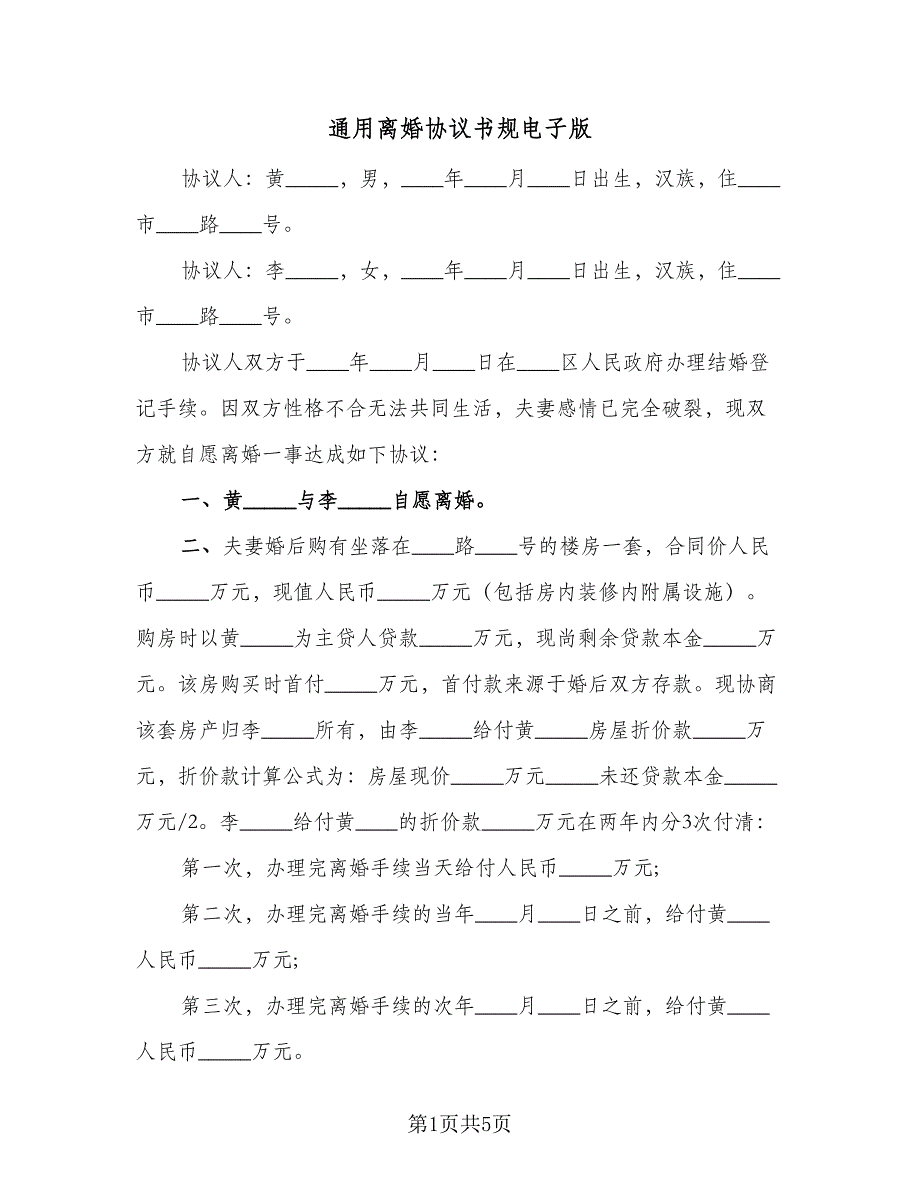 通用离婚协议书规电子版
协议人：黄_____，男，____年____月____日出生，汉族，住____
市____路____号。
协议人：李_____，女，____年____月____日出生，汉族，住____
市____路____号。
协议人双方于____年____月____日在____区人民政府办理结婚登
记手续。因双方性格不合无法共同生活，夫妻感情已完全破裂，现双
方就自愿离婚一事达成如下协议：
一、黄_____与李_____自愿离婚。
二、夫妻婚后购有坐落在____路____号的楼房一套，合同价人民
币_____万元，现值人民币_____万元（包括房内装修内附属设施）。
购房时以黄_____为主贷人贷款_____万元，现尚剩余贷款本金_____万
元。该房购买时首付_____万元，首付款来源于婚后双方存款。现协商
该套房产归李_____所有，由李_____给付黄_____房屋折价款_____万
元，折价款计算公式为：房屋现价_____万元_____未还贷款本金_____
万元/2。李_____给付黄____的折价款_____万元在两年内分3次付清：
第一次，办理完离婚手续当天给付人民币_____万元;
第二次，办理完离婚手续的当年____月____日之前，给付黄____
人民币_____万元;
第三次，办理完离婚手续的次年____月____日之前，给付黄____
人民币_____万元。
第1页共5页